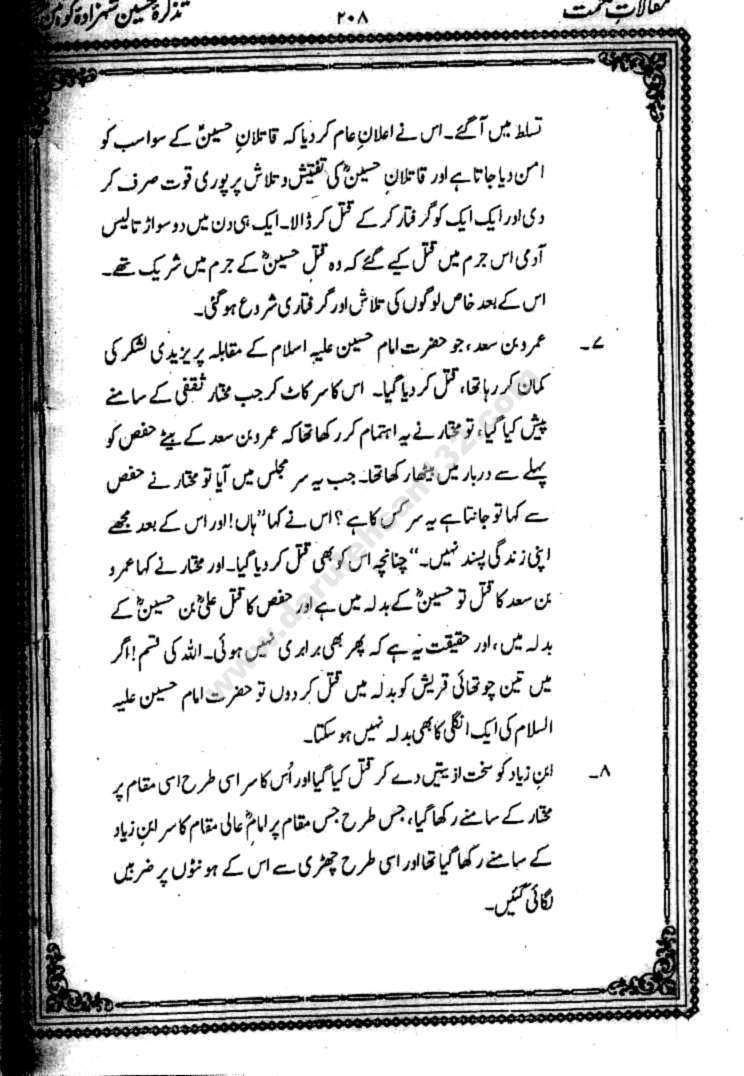 مقالاتِ حکمت ۲۰۸ تذکرۂ حسین شہزادۂ کونین
تسلط میں آگئے۔ اس نے اعلانِ عام کر دیا کہ قاتلانِ حسینؓ کے سوا سب کو
امن دیا جاتا ہے اور قاتلانِ حسینؓ کی تفتیش و تلاش پر پوری قوت صرف کر
دی اور ایک ایک کو گرفتار کر کے قتل کر ڈالا۔ ایک ہی دن میں دو سو اڑتالیس
آدمی اس جرم میں قتل کیے گئے کہ وہ قتلِ حسینؓ کے جرم میں شریک تھے۔
اس کے بعد خاص لوگوں کی تلاش اور گرفتاری شروع ہوگئی۔
۷۔ عمرو بن سعد، جو حضرت امام حسین علیہ اسلام کے مقابلہ پر یزیدی لشکر کی
کمان کر رہا تھا، قتل کر دیا گیا۔ اس کا سر کاٹ کر جب مختار ثقفی کے سامنے
پیش کیا گیا، تو مختار نے یہ اہتمام کر رکھا تھا کہ عمرو بن سعد کے بیٹے حفص کو
پہلے سے دربار میں بیٹھا رکھا تھا۔ جب یہ سر مجلس میں آیا تو مختار نے حفص
سے کہا تو جانتا ہے یہ سر کس کا ہے؟ اس نے کہا ”ہاں! اور اس کے بعد مجھے
اپنی زندگی پسند نہیں۔“ چنانچہ اس کو بھی قتل کر دیا گیا۔ اور مختار نے کہا عمرو
بن سعد کا قتل تو حسینؓ کے بدلہ میں ہے اور حفص کا قتل علیؓ بن حسینؓ کے
بدلہ میں، اور حقیقت یہ ہے کہ پھر بھی برابری نہیں ہوئی۔ اللہ کی قسم! اگر
میں تین چوتھائی قریش کو بدلہ میں قتل کر دوں تو حضرت امام حسین علیہ
السلام کی ایک انگلی کا بھی بدلہ نہیں ہو سکتا۔
۸۔ ابنِ زیاد کو سخت اذیتیں دے کر قتل کیا گیا اور اُس کا سر اسی طرح اسی مقام پر
مختار کے سامنے رکھا گیا، جس طرح جس مقام پر امامؓ عالی مقام کا سر ابنِ زیاد
کے سامنے رکھا گیا تھا اور اسی طرح چھڑی سے اس کے ہونٹوں پر ضربیں
لگائی گئیں۔